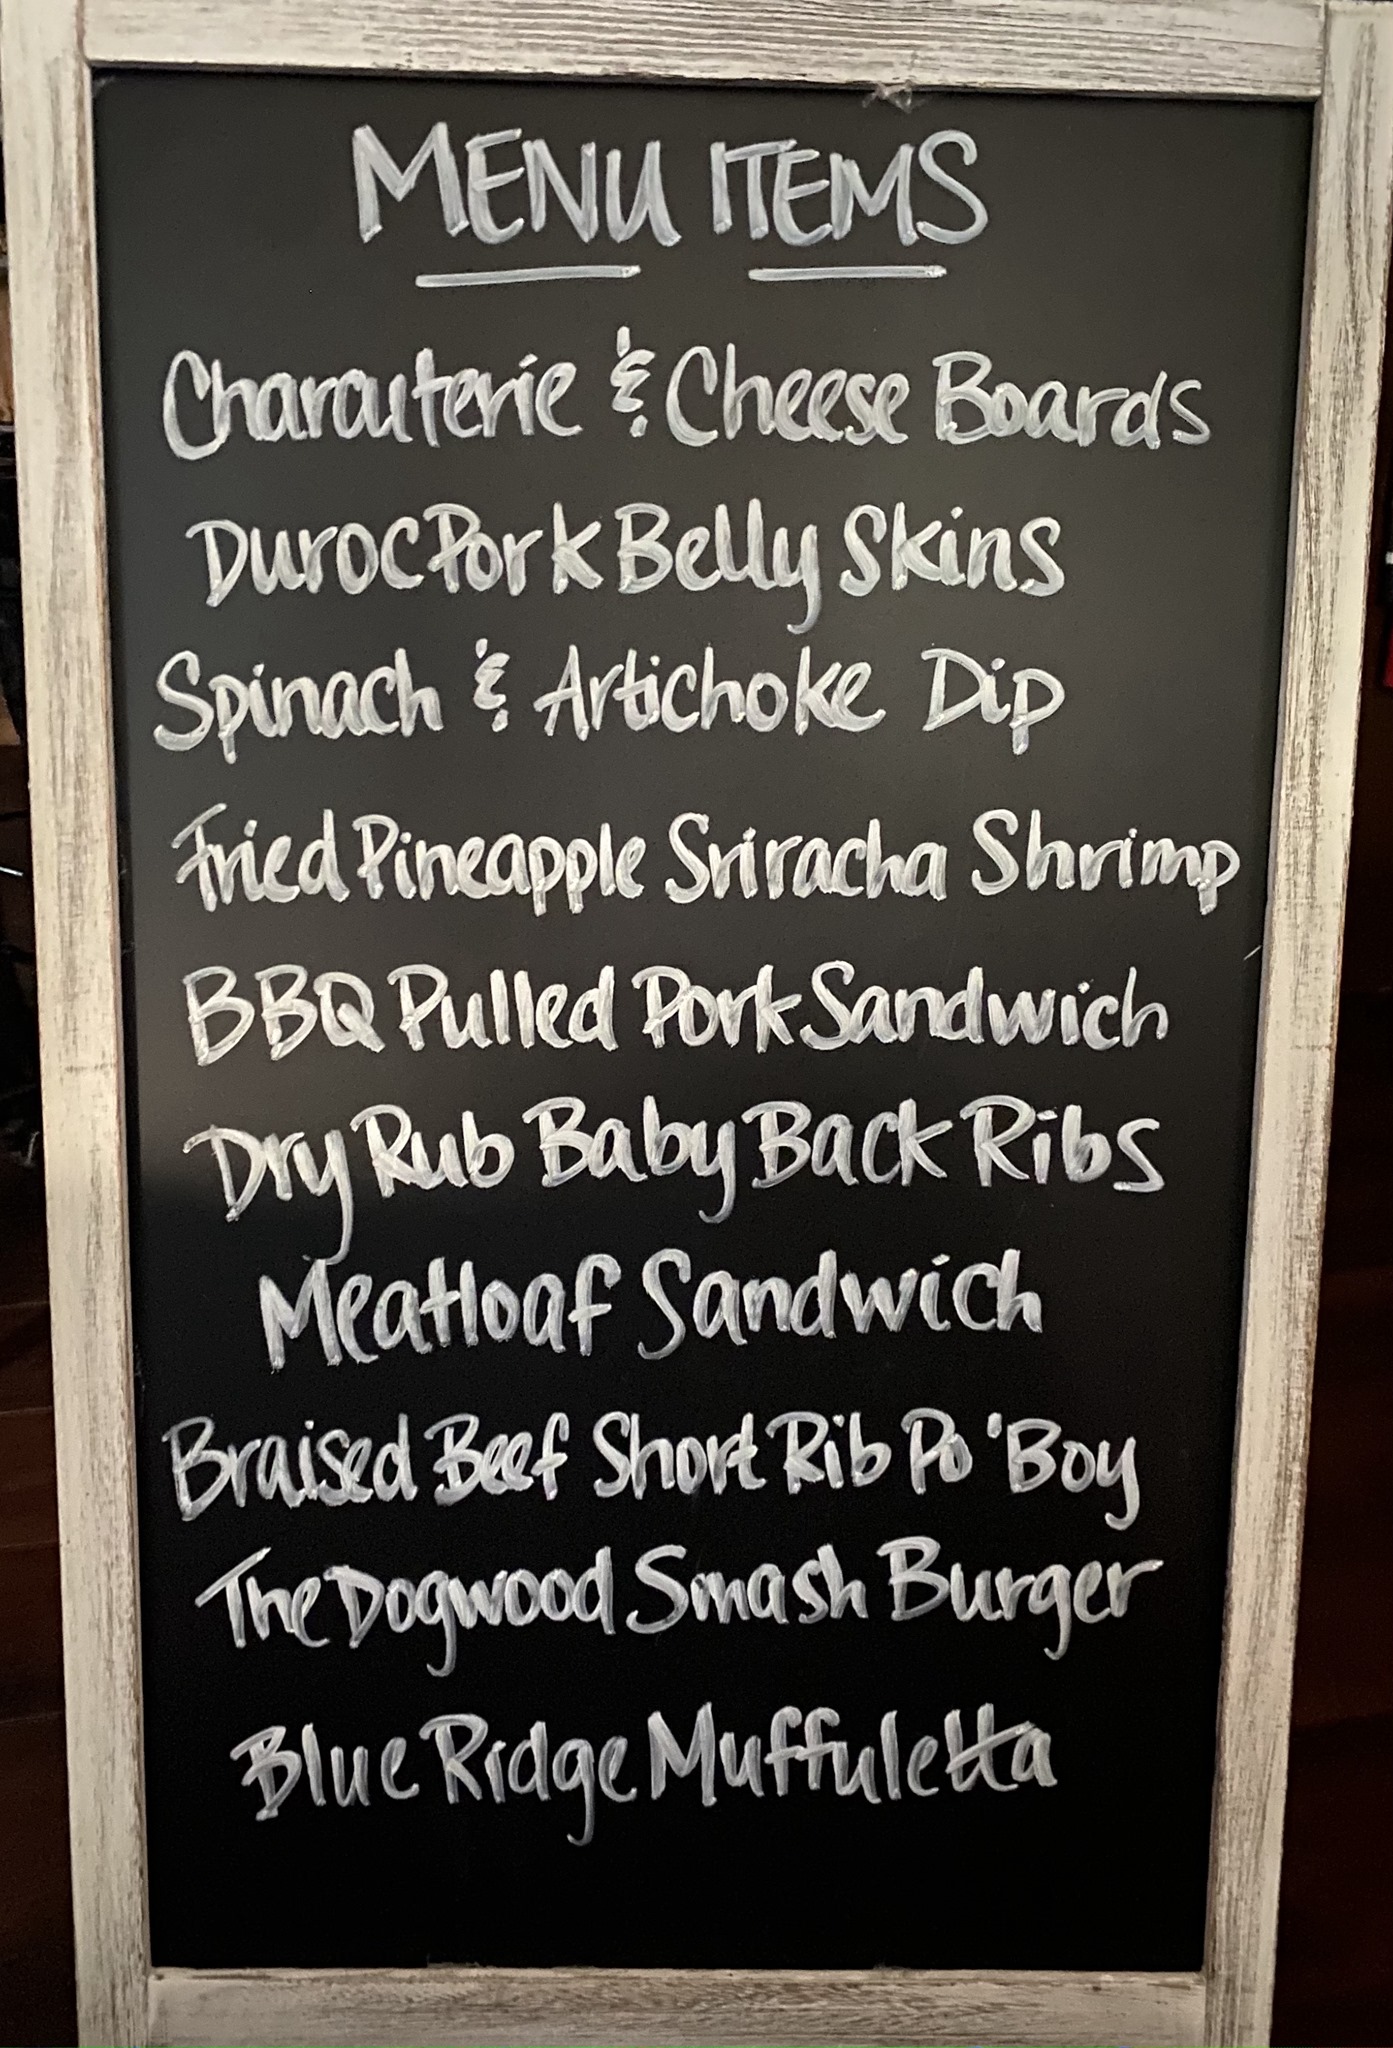 MENU ITEMS
Charcuterie & Cheese Boards
Duroc Pork Belly Skins
Spinach & Artichoke Dip
Fried Pineapple Sriracha Shrimp
BBQ Pulled Pork Sandwich
Dry Rub Baby Back Ribs
Meatloaf Sandwich
Braised Beef Short Rib Po 'Boy
The Dogwood Smash Burger
Blue Ridge Muffuletta